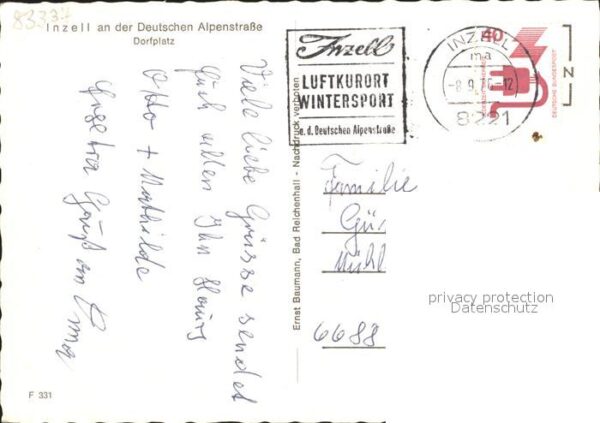 83334
Inzell an der Deutschen Alpenstraße
Dorfplatz
Viele liebe Grüsse sendet
Euch allen Ihr
Otto + Mathilde
Gruß an Oma
Ernst Baumann, Bad Reichenhall - Nachdruck verboten
Inzell
LUFTKURORT
WINTERSPORT
a.d. Deutschen Alpenstraße
INZELL
ma
-8.9.76-12
8221
40
DEUTSCHE BUNDESPOST
N
Familie
Gü
Mühl
6688
privacy protection
Datenschutz
F 331